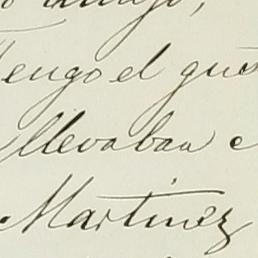 amigo,
Tengo el gus
llevaban
Martinez